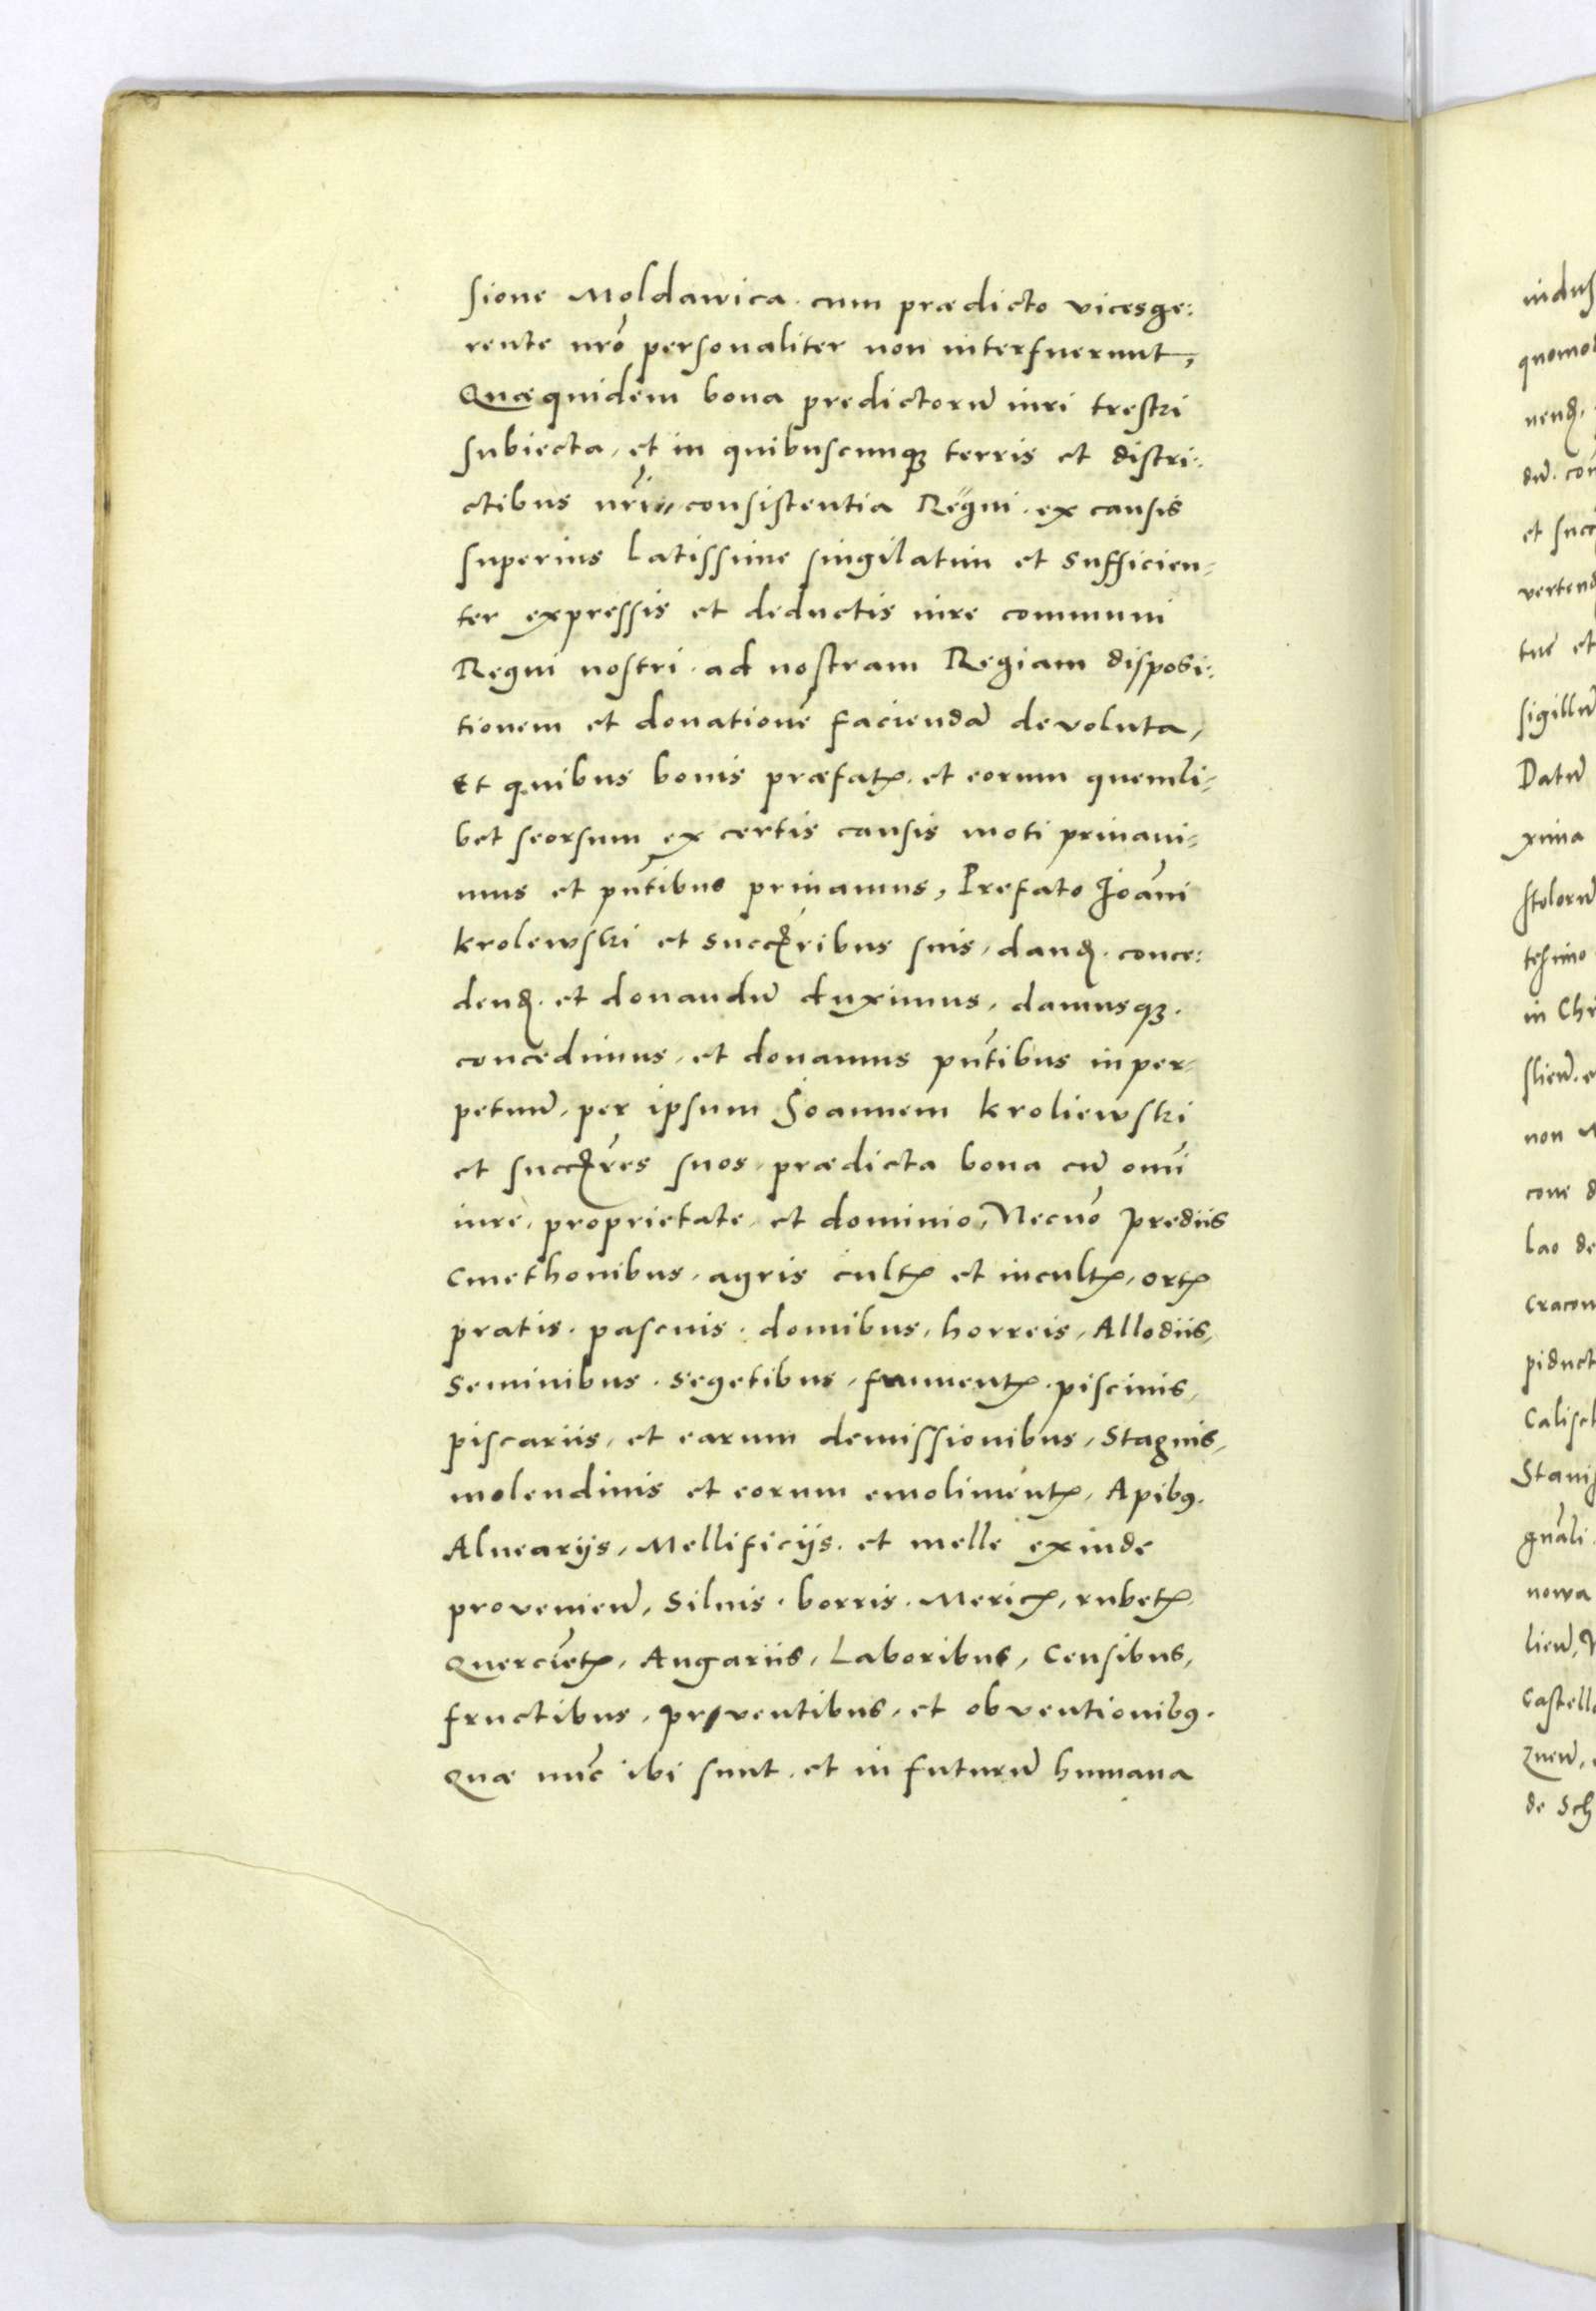 sione Moldawica. cum prædicto vicesge:
rente nrō personaliter non interfuerunt,
Quæquidem bona predictorū iuri trestri
subiecta, et in quibuscunqꝫ terris et distri:
ctibus nrī,, consistentia Regni. ex causis
superius latissime singilatim et sufficien-
ter expressis et deductis iure communi
Regni nostri. ad nostram Regiam disposi:
tionem et donationē faciendā devoluta,
Et quibus bonis præfatꝭ. et eorum quemli-
bet seorsum ex certis causis moti priuaui-
mus et pn̄tibus priuamus, Prefato Ioāni
krolewski et succꝛ̄ribus suis, dandꝭ. conce:
dendꝭ. et donandū duximus, damusqꝫ.
concedimus, et donamus pn̄tibus inper-
petuū, per ipsum Joannem kroliewski
et succꝛ̄res suos, prædicta bona cū omī
iure, proprietate, et dominio, Necnō prediis
Cmethonibus, agris cultꝭ et incultꝭ, ortꝭ
pratis. pascuis. domibus, horreis, Allodiis,
seminibus. segetibus, frumentꝭ. piscinis,
piscariis, et earum demissionibus, stagnis,
molendinis et eorum emolimentꝭ, Apibꝰ.
Alueariis, Mellificiis. et melle exinde
provenieñ, siluis. borris. Mericꝭ, rubetꝭ.
Quercietꝭ, Angariis, Laboribus, Censibus,
fructibus, proventibus, et obventionibꝰ.
Quæ nūc ibi sunt. et in futurū humana
sigillū
Datū
xima
in Chr
non
lao de
Calisch
nowa
Castell
de Sch